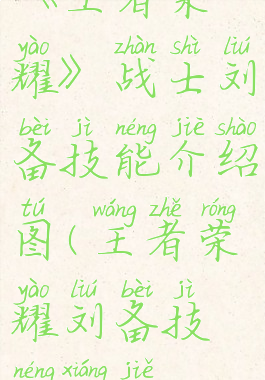 《王者荣
yào zhàn shì liú
耀》 战士刘
bèi jì néng jiè shào
备技能介绍
tú wáng zhě róng
图(王者荣
yào liú bèi jì
耀刘备技
néng xiáng jiě